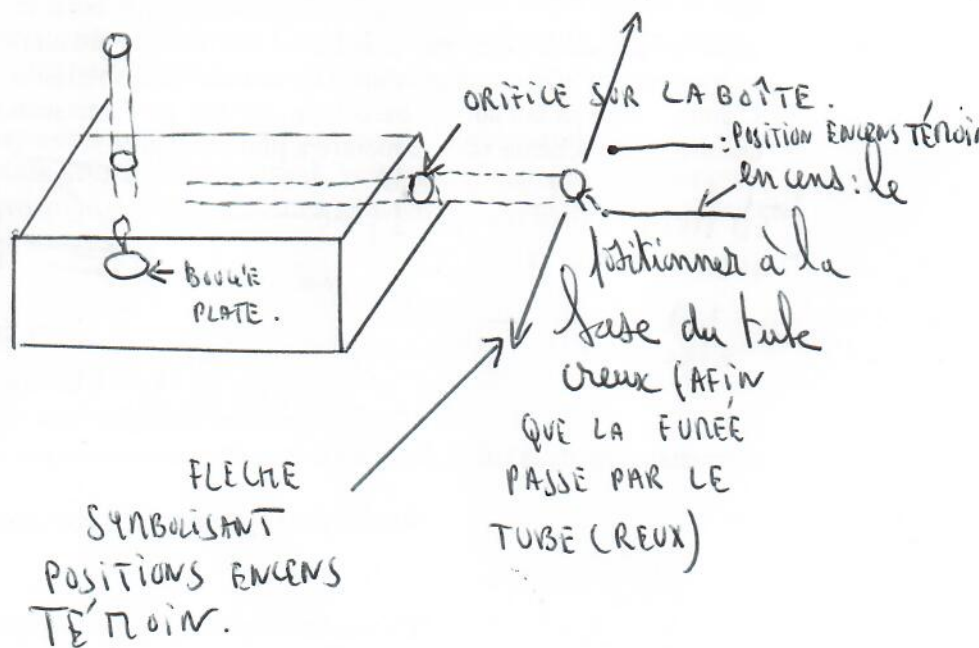 ORIFICE SUR LA BOÎTE.
: POSITION ENCENS TÉMOIN
encens : le
positionner à la
base du tube
creux (AFIN
QUE LA FUMÉE
PASSE PAR LE
TUBE CREUX)
BOUGIE
PLATE.
FLECHE
SYMBOLISANT
POSITIONS ENCENS
TÉMOIN.